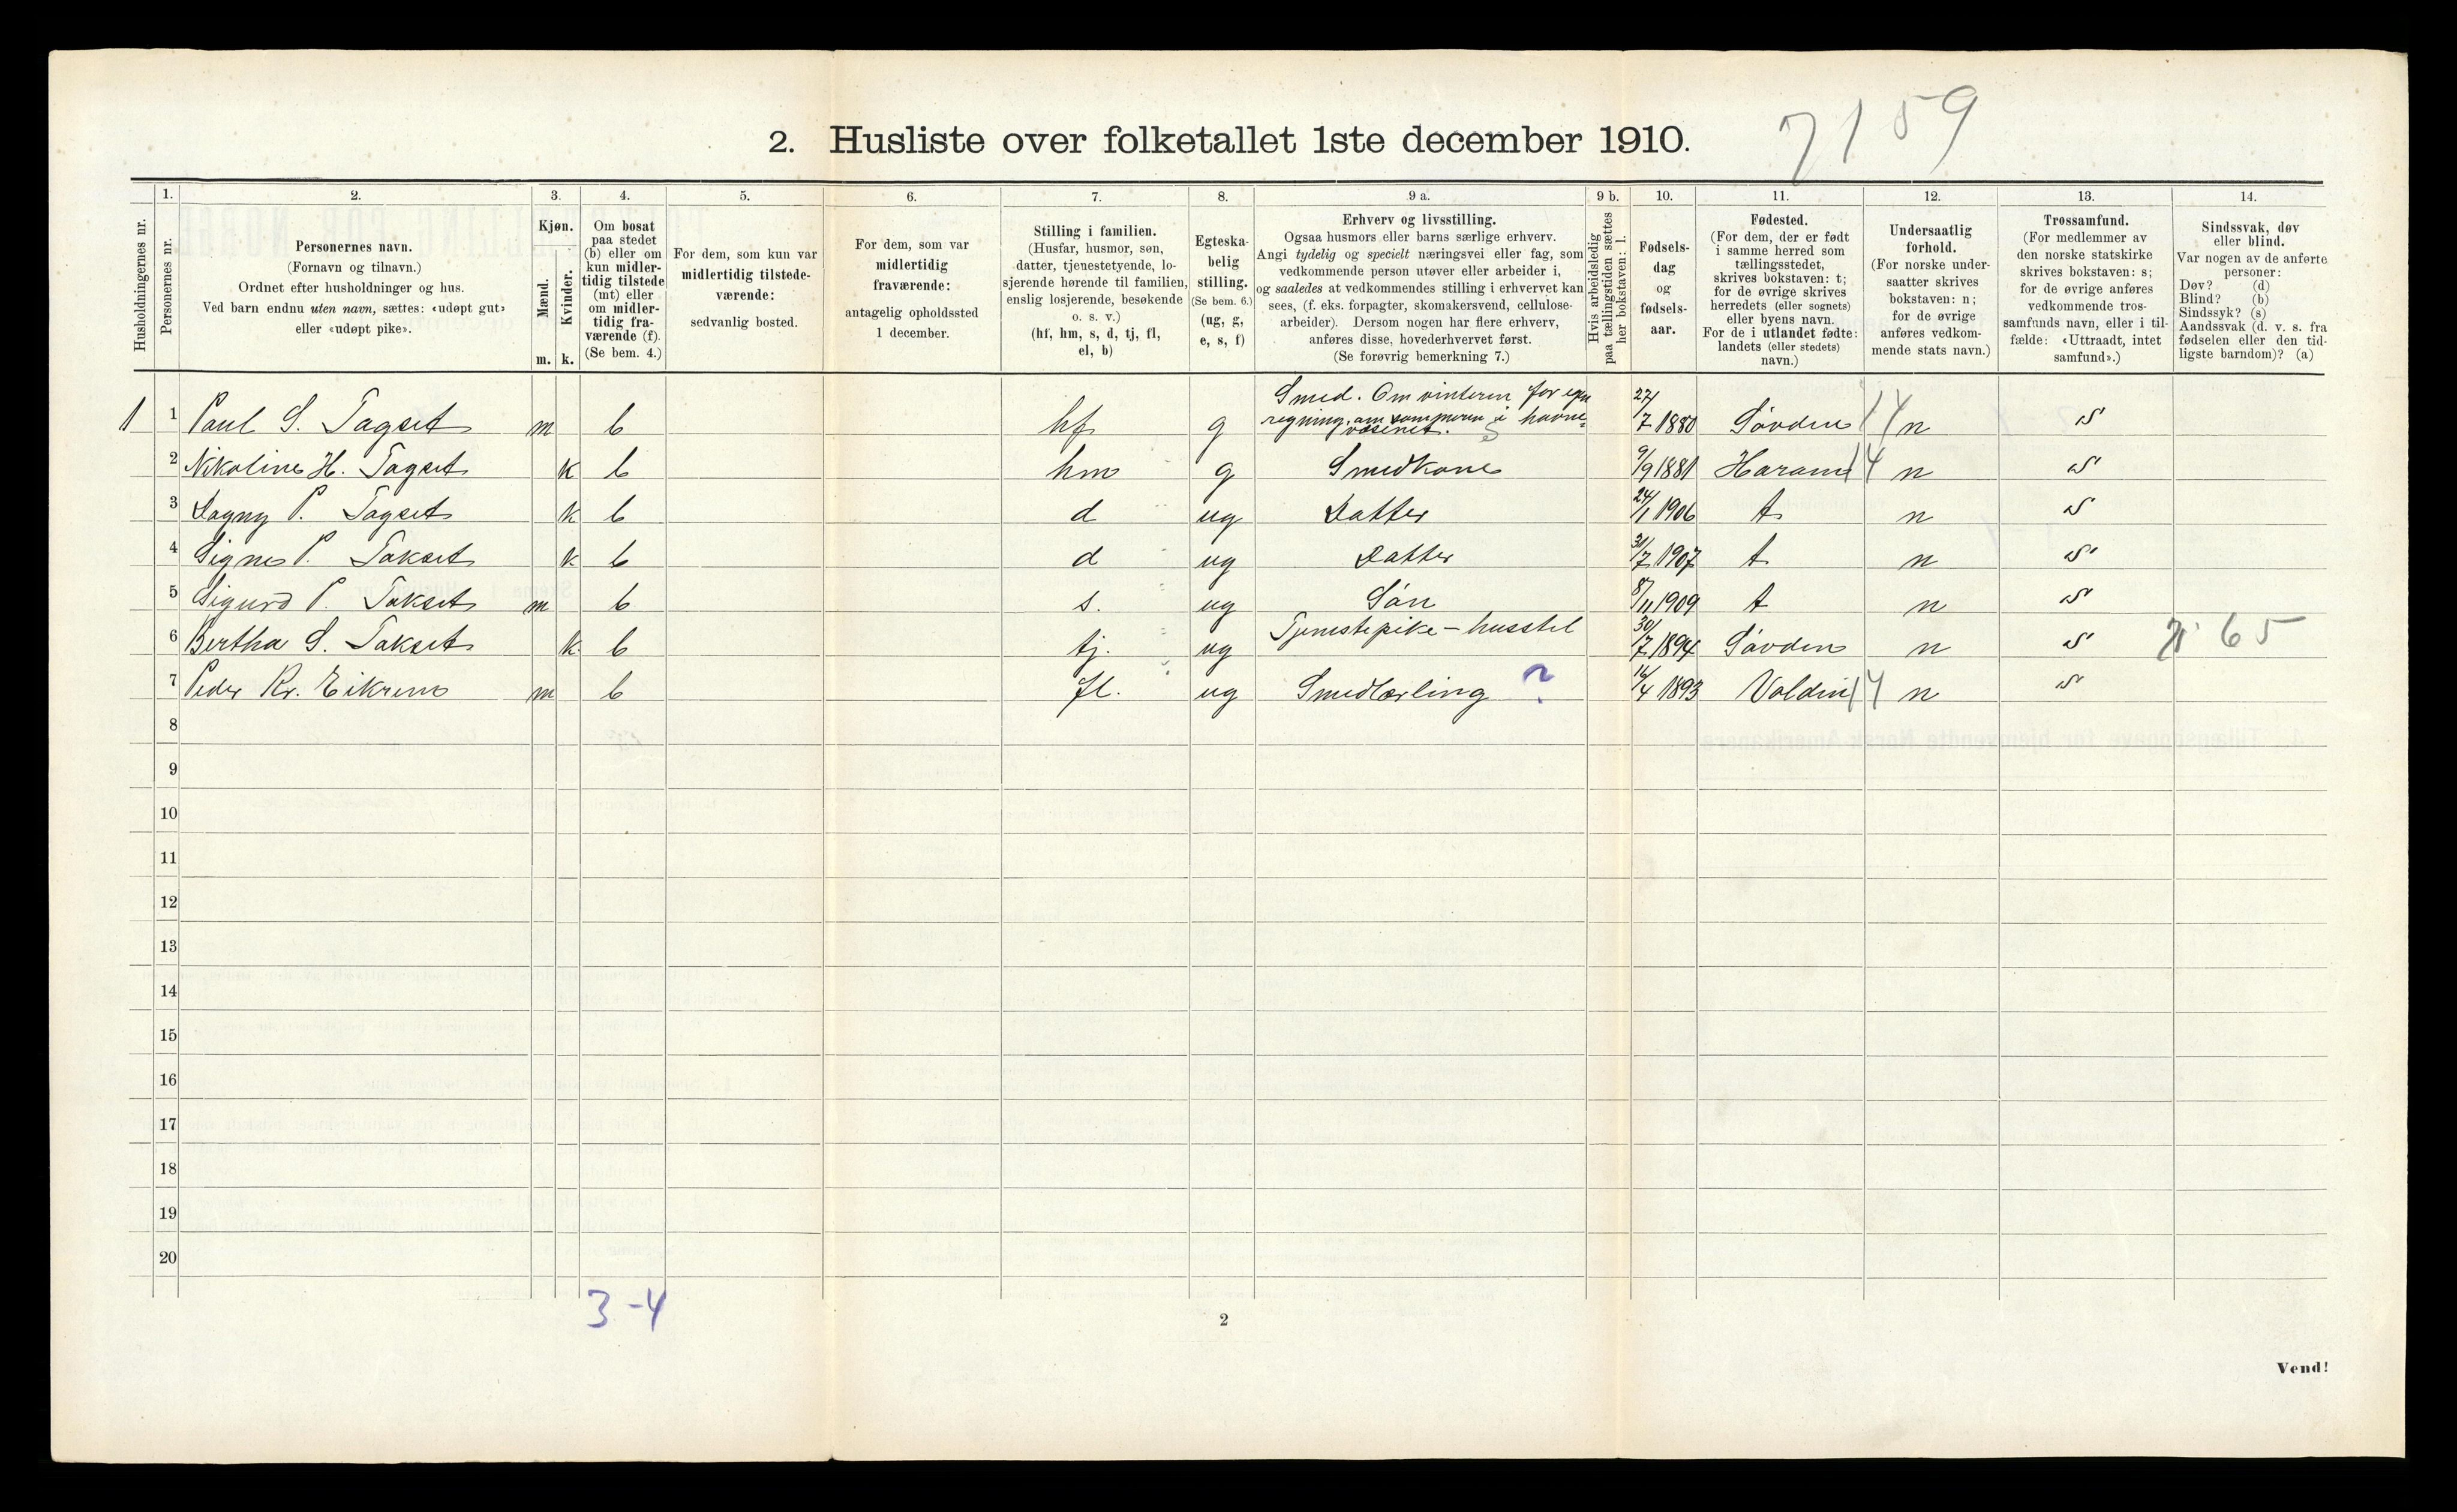 2. Husliste over folketallet 1ste december 1910. 7159
1. 2. 3. 4. 5. 6. 7. 8. 9 a. 9 b. 10. 11. 12. 13. 14.
Husholdningernes nr.
Personernes nr.
Personernes navn.
(Fornavn og tilnavn.)
Ordnet efter husholdninger og hus.
Ved barn endnu uten navn, sættes: «udøpt gut»
eller «udøpt pike».
Kjøn.
Mænd.
Kvinder.
m. k.
Om bosat
paa stedet
(b) eller om
kun midler-
tidig tilstede
(mt) eller
om midler-
tidig fra-
værende (f).
(Se bem. 4.)
For dem, som kun var
midlertidig tilstede-
værende:
sedvanlig bosted.
For dem, som var
midlertidig
fraværende:
antagelig opholdssted
1 december.
Stilling i familien.
(Husfar, husmor, søn,
datter, tjenestetyende, lo-
sjerende hørende til familien,
enslig losjerende, besøkende
o. s. v.)
(hf, hm, s, d, tj, fl,
el, b)
Egteska-
belig
stilling.
(Se bem. 6.)
(ug, g,
e, s, f)
Erhverv og livsstilling.
Ogsaa husmors eller barns særlige erhverv.
Angi tydelig og specielt næringsvei eller fag, som
vedkommende person utøver eller arbeider i,
og saaledes at vedkommendes stilling i erhvervet kan
sees, (f. eks. forpagter, skomakersvend, cellulose-
arbeider). Dersom nogen har flere erhverv,
anføres disse, hovederhvervet først.
(Se forøvrig bemerkning 7.)
Hvis arbeidsledig
paa tællingstiden sættes
her bokstaven: l.
Fødsels-
dag
og
fødsels-
aar.
Fødested.
(For dem, der er født
i samme herred som
tællingsstedet,
skrives bokstaven: t;
for de øvrige skrives
herredets (eller sognets)
eller byens navn.
For de i utlandet fødte:
landets (eller stedets)
navn.)
Undersaatlig
forhold.
(For norske under-
saatter skrives
bokstaven: n;
for de øvrige
anføres vedkom-
mende stats navn.)
Trossamfund.
(For medlemmer av
den norske statskirke
skrives bokstaven: s;
for de øvrige anføres
vedkommende tros-
samfunds navn, eller i til-
fælde: «Uttraadt, intet
samfund».)
Sindssvak, døv
eller blind.
Var nogen av de anførte
personer:
Døv? (d)
Blind? (b)
Sindssyk? (s)
Aandssvak (d. v. s. fra
fødselen eller den tid-
ligste barndom)? (a)
Smed. Om vinteren for egen
regning, om sommeren i havne-
væsenet.
1 1 Paul S. Tagset m b hf g 27/7 1880 Søvden 14 n s
2 Nikoline H. Tagset k b hm g Smedkone 9/9 1881 Haram 14 n s
3 Dagny P. Tagset k b d ug Datter 24/1 1906 t n s
4 Signe P. Takset k b d ug Datter 31/7 1907 t n s
5 Sigurd P. Takset m b s. ug Søn 8/11 1909 t n s
6 Bertha S. Takset k b tj. ug Tjenestepike - husstel 30/7 1894 Søvden n s 65
7 Peder Kr. Eikrem m b fl. ug Smedlærling ? 1893 Volden 14 n s
8
9
10
11
12
13
14
15
16
17
18
19
20
3-4
2
Vend!